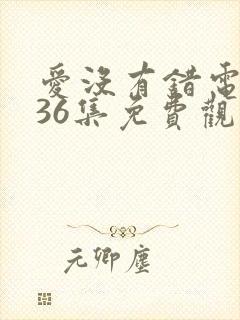 愛沒有錯電
36集免費觀
元卿塵